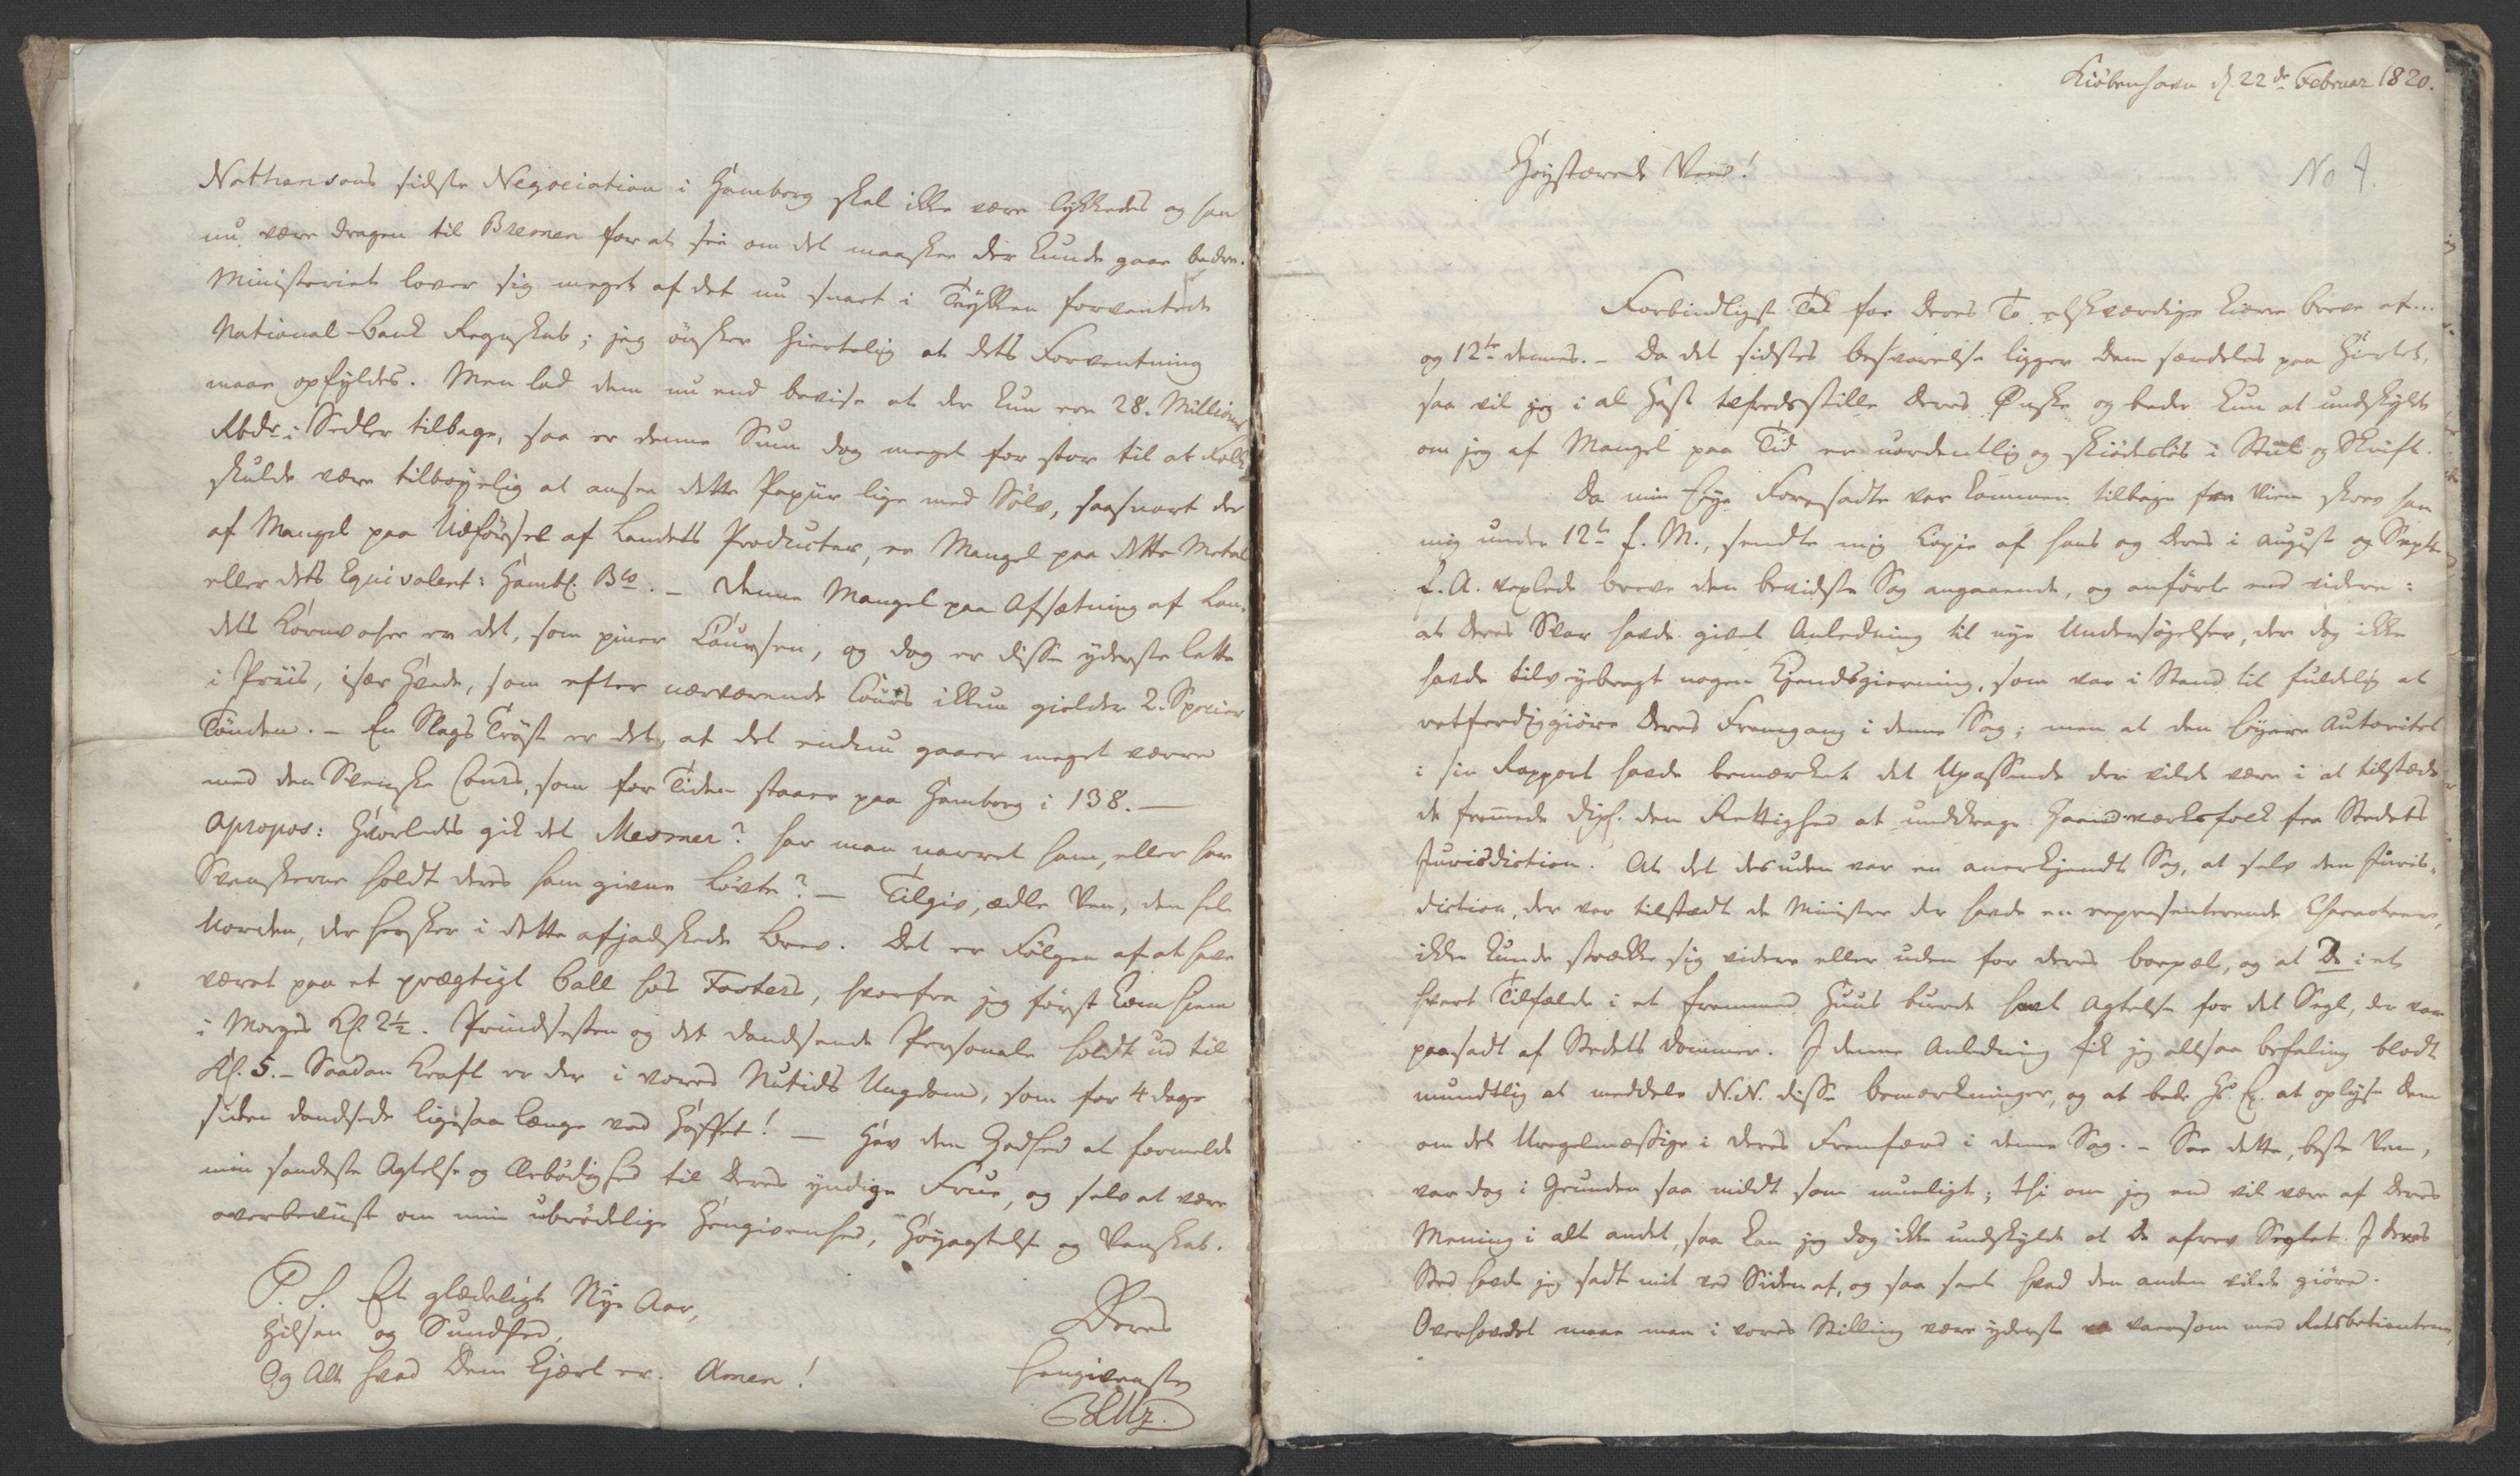 Nathansons sidste Negociation i Hamborg skal ikke være lykkedes og han
nu være dragen til Bremen for at see om det maaskee der kunde gaae bedre.
Ministeriet lover sig meget af det nu snart i Trykken forventede
National-Bank Regnskab; jeg ønsker hiertelig at dets Forventning
maae opfyldes. Men lad dem nu end bevise at der kun ere 28. Millioner
Rbdr i Sedler tilbage, saa er denne Sum dog meget for stor til at Folk
skulde være tilbøyelig at ansee dette Papiir lige med Sölv, saasnart der
af Mangel paa Udförsel af Landets Producter, er Mangel paa dette Metal
eller dets Equivalent: Hambg. Bco. – Denne Mangel paa Afsætning af Lan-
dets Kornvahre er det, som piner Coursen, og dog er disse yderste lette
i Priis, især Hvede, som efter nærværende Cours ikkun gielder 2. Specier
Tönden. – En Slags Tröst er det, at det endnu gaaer meget værre
med den Svenske Cours, som for Tiden staaer paa Hamborg i 138. –
Apropos: Hvorledes gik det Mesmer? har man narret ham, eller har
Svenskerne holdt deres ham givne Lövte? – Tilgiv, ædle Ven, den hele
Uorden, der hersker i dette afjadskede Brev. Det er Fölgen af at have
været paa et prægtigt Ball hos Fosters, hvorfra jeg först kom hiem
i Morges Kl 2½. Prindsessen og det dandsende Personale holdt ud til
Kl. 5. – Saadan Kraft er der i vores Nutids Ungdom, som for 4 dage
siden dandsede ligesaa længe ved Hoffet! – Hav den Godhed at formelde
min sandeste Agtelse og Ærbödighed til Deres yndige Frue, og selv at være
overbeviist om min ubrödelige Hengivenhed, Höyagtelse og Venskab.
P. S. Et glædeligt Nye Aar,
Hilsen og Sundhed,
Og Alt hvad Dem kjært er. Amen!
Deres
hengivenste
Kiöbenhavn d. 22de Februar 1820.
Höystærede Ven!
No 4.
Forbindligst Tak for Deres To elskværdige kiære breve af...
og 12te dennes. – Da det sidstes besvarelse ligger Dem særdeles paa Hiertet,
saa vil jeg i al Hast tilfredsstille Deres Ønske og beder kun at undskylde
om jeg af Mangel paa Tid er uordentlig og skiödeslös i Stiil og Skrift.
Da min Foresadte var kommen tilbage fra Wien skrev han
mig under 12te f. M., sendte mig Copie af hans og Deres i August og Septr
f. A. vexlede breve den bevidste Sag angaaende, og anförte end videre:
at Deres Svar havde givet Anledning til nye Undersögelser, der dog ikke
havde tilveyebragt nogen Kjendsgierning, som var i Stand til fuldelig at
retfærdiggiöre Deres Fremgang i denne Sag; men at den höyere Autoritet
i sin Rapport havde bemærket det Upassende der vilde være i at tilstæde
de fremede dipl. den Rettighed at unddrage Haandværksfolk fra Stedets
Jurisdiction. At det desuden var en anerkjendt Sag, at selv den Juris-
diction, der var tilstædt de Ministre der havde en representerende Characteer,
ikke kunde strække sig videre eller uden for deres boepæl, og at De i et
hvert Tilfælde i et fremmed Huus burde havt Agtelse for det Segl, der var
paasadt af Stedets Dommer. I denne Anledning fik jeg altsaa befaling blodt
mundtlig at meddele N.N. disse bemærkninger, og at bede Hs. Ex. at oplyse Dem
om det Uregelmæssige i Deres Fremfærd i denne Sag. – See dette, beste Ven,
var dog i Grunden saa mildt som mueligt; thi om jeg end vil være af Deres
Mening i alt andet, saa kan jeg dog ikke undskylde at De afrev Seglet. I Deres
Sted havde jeg sadt mit ved Siden af, og saa seet hvad den anden vilde giöre.
Overhovedet maae man i vores Stilling være yderst varsom med Retsbetienterne,